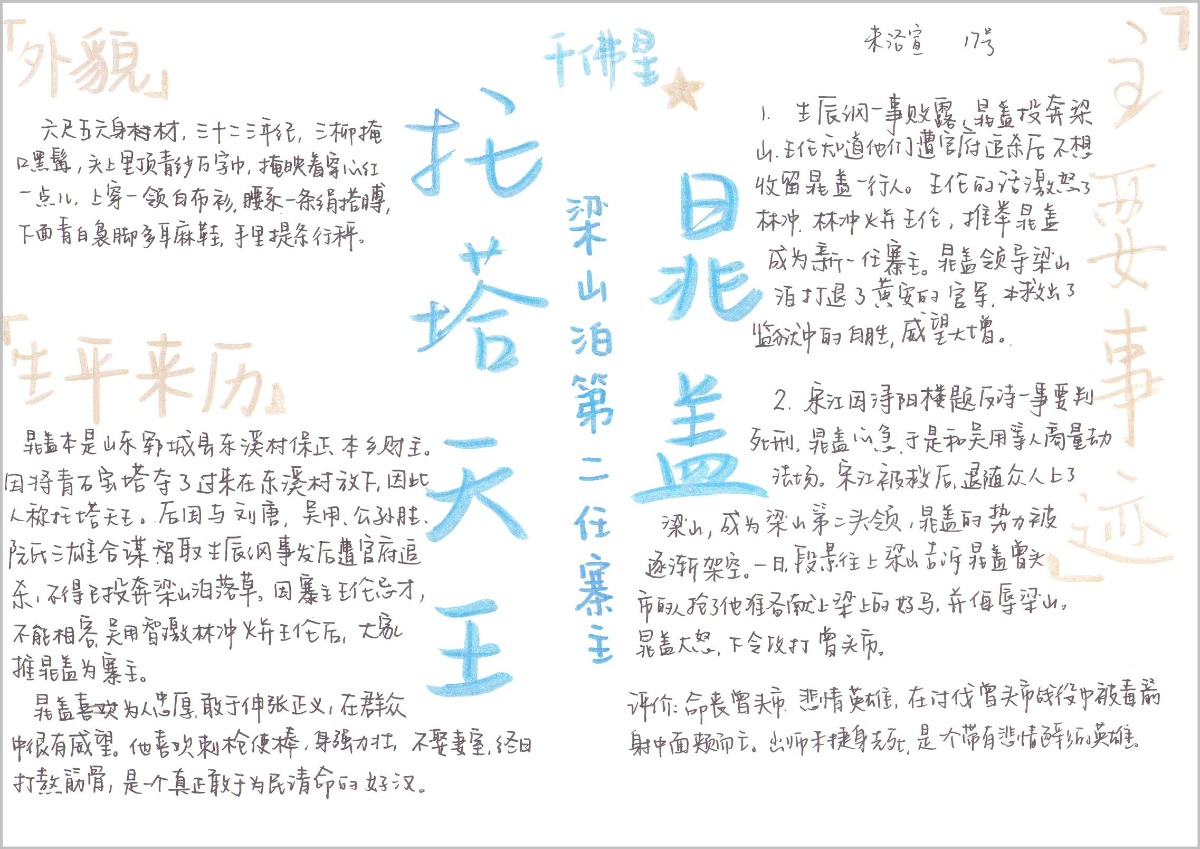 「外貌」
六尺五六身材材，三十二三年纪，三柳掩
口黑髯，头上里顶青纱万字巾，掩映着穿心红
一点儿，上穿一领白布衫，腰系一条绢搭膊，
下面青白裹脚多耳麻鞋，手里提条行秤。
「生平来历」
晁盖本是山东郓城县东溪村保正，本乡财主。
因将青石宝塔夺了过来在东溪村放下，因此
人称托塔天王。后因与刘唐，吴用、公孙胜、
阮氏三雄合谋智取生辰纲事发后遭官府追
杀，不得已投奔梁山泊落草。因寨主王伦忌才，
不能相容，吴用智激林冲火并王伦后，大家
推晁盖为寨主。
晁盖喜欢为人忠厚，敢于伸张正义，在群众
中很有威望。他喜欢刺枪使棒，身强力壮，不娶妻室，终日
打熬筋骨，是一个真正敢于为民请命的好汉。
千佛星
托塔天王
梁山泊第二任寨主
晁盖
来洛宣 17号
「主要事迹」
1. 生辰纲一事败露，晁盖投奔梁
山，王伦知道他们遭官府追杀后不想
收留晁盖一行人。王伦的话激怒了
林冲，林冲火并王伦，推举晁盖
成为新一任寨主。晁盖领导梁山
泊打退了黄安的官军，
监狱中的白胜，威望大增。
2. 宋江因浔阳楼题反诗一事要判
死刑，晁盖心急，于是和吴用等人商量劫
法场。宋江被救后，跟随众人上了
梁山，成为梁山第二头领，晁盖的势力被
逐渐架空。一日，段景住上梁山告诉晁盖曾头
市的人抢了他准备献上梁上的好马，并侮辱梁山。
晁盖大怒，下令攻打曾头市。
评价：命丧曾头市，悲情英雄，在讨伐曾头市战役中被毒箭
射中面颊而亡。出师未捷身先死，是个带有悲情色彩的英雄。